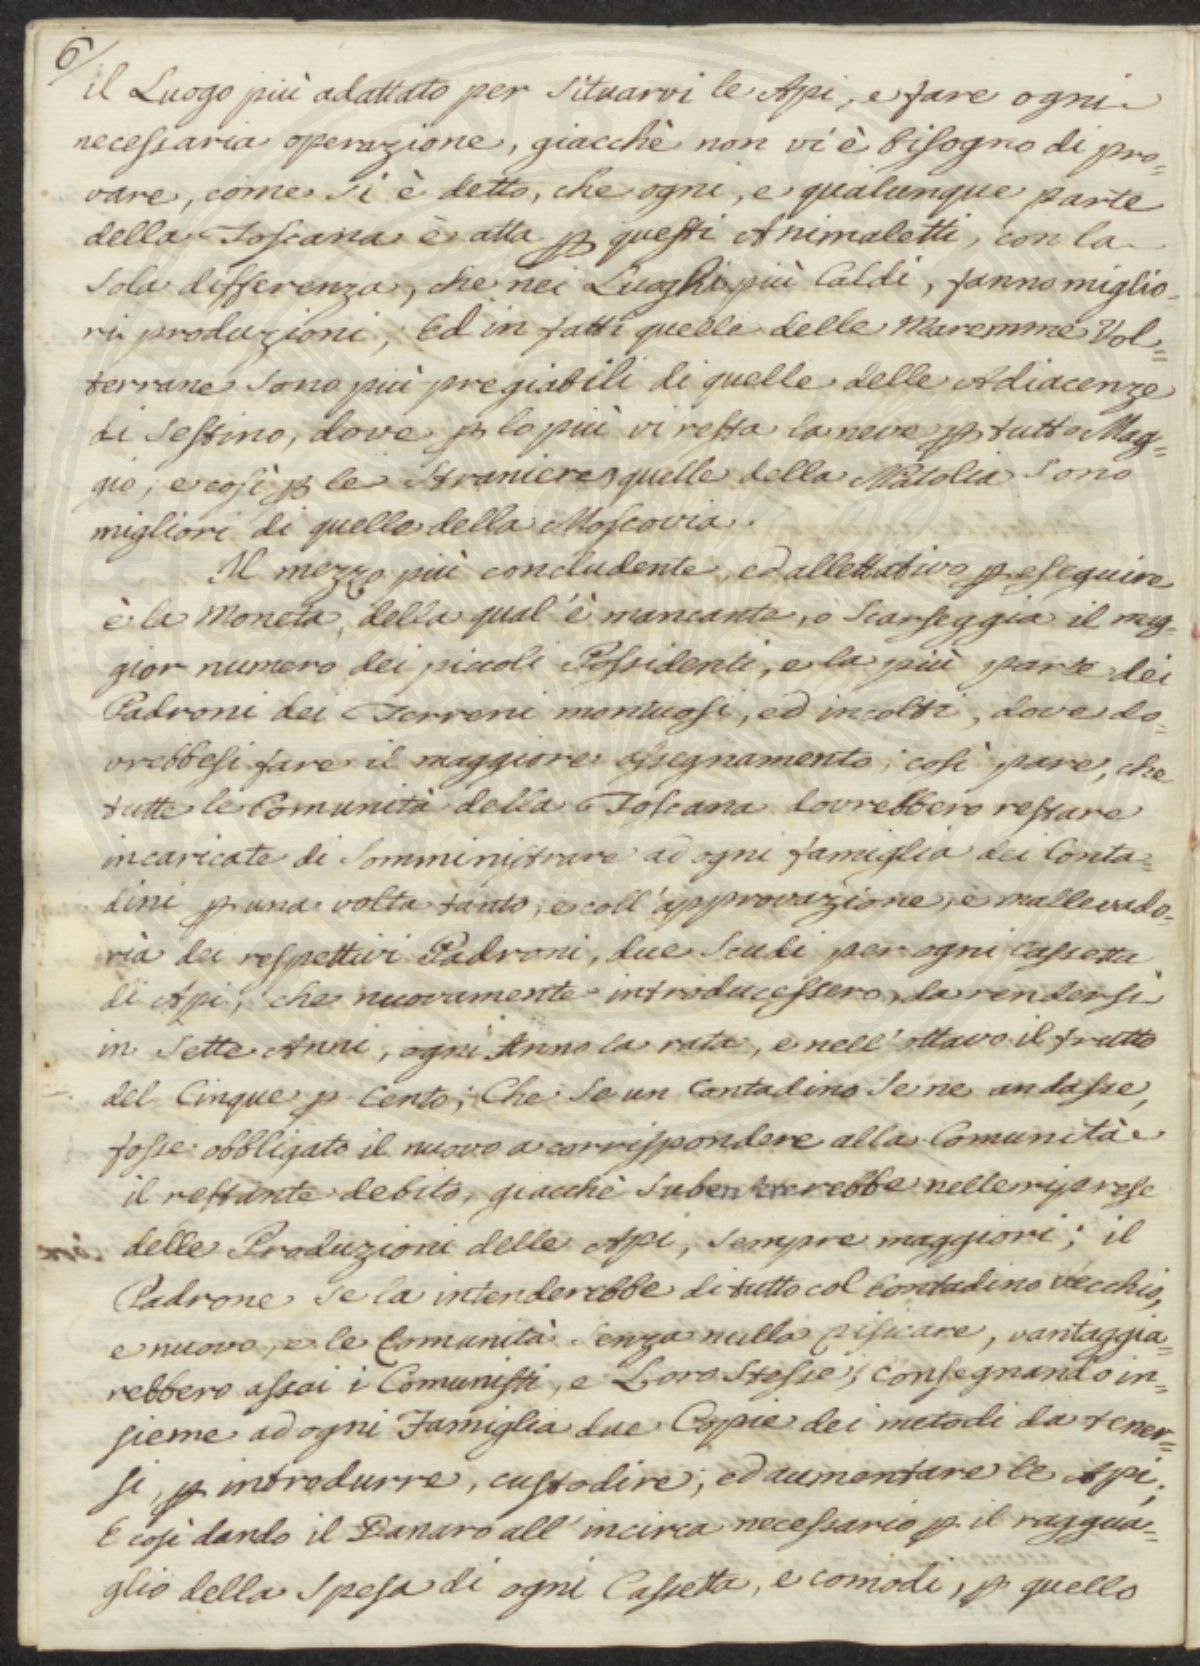 6
il Luogo più adattato per situarvi le Api, e fare ogni
necessaria operazione, giacchè non vi è bisogno di pro=
vare, come si è detto, che ogni, e qualunque parte
della Toscana è atta p questi Animaletti, con la
sola differenza, che nei Luoghi più Caldi, fanno miglio=
ri produzioni; Ed in fatti quelle delle Maremme Vol=
terrane sono più pregiabili di quelle delle Adiacenze
di Sestino, dove p lo più vi resta la neve p tutto Mag=
gio, e così p le Straniere, quelle della Natolia sono
migliori di quelle della Moscovia.
Il mezzo più concludente, ed allettativo p eseguire
è la Moneta, della qual'è mancante, o scarseggia il mag=
gior numero dei piccoli Possidenti, e la più parte dei
Padroni dei Terreni montuosi, ed incolti, dove do=
vrebbesi fare il maggiore assegnamento; così pare, che
tutte le Comunità della Toscana dovrebbero restare
incaricate di somministrare ad ogni famiglia dei Conta=
dini p una volta tanto, e coll'approvazione, e mallevado=
ria dei respettivi Padroni, due Scudi per ogni Cassetta
di Api, che nuovamente introducessero, da rendersi
in Sette Anni, ogni Anno la rata, e nell'ottavo il frutto
del Cinque p Cento; Che se un Contadino se ne andasse,
fosse obbligato il nuovo a corrispondere alla Comunità
il restante debito, giacchè subentrerebbe nelle riprese
delle Produzioni delle Api, sempre maggiori; il
Padrone se la intenderebbe di tutto col Contadino vecchio,
e nuovo, e le Comunità senza nulla risicare, vantaggia=
rebbero assai i Comunisti, e Loro Stesse, consegnando in=
sieme ad ogni Famiglia due Copie dei metodi da tener=
si, p introdurre, custodire, ed aumentare le Api;
E così dando il Danaro all'incirca necessario p il raggua=
glio della Spesa di ogni Cassetta, e comodi, p quello